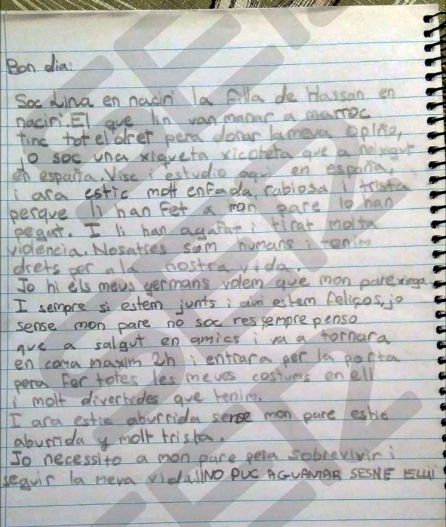 Bon dia:
Soc Lina en naciri la filla de Hassan en
naciri. El que lin van manar a marroc
tinc tot el dret pera donar la meva opiño,
Jo soc una xiqueta xicoteta que a neixgut
en españa. Visc i estudio aqui en españa,
i ara estic molt enfada, rabiosa i trista
perque li han fet a mon pare lo han
pegat. I li han agafat i tirat molta
violencia. Nosatres som humans i tenim
drets per a la nostra vida.
Jo hi els meus germans volem que mon pare vinga
I sempre si estem junts i aixi estem feliços, jo
sense mon pare no soc res sempre penso
que a salgut en amics i va a tornara
en coma maxim 2h i entrara per la porta
pera fer totes les meves costums en ell
i molt divertides que tenim.
I ara estic aburrida sense mon pare estic
aburrida y molt trista.
Jo necessito a mon pare pera sobrevivir i
seguir la meva vida NO PUC AGUANTAR SESNE
SETZ
SETZ
SETZ